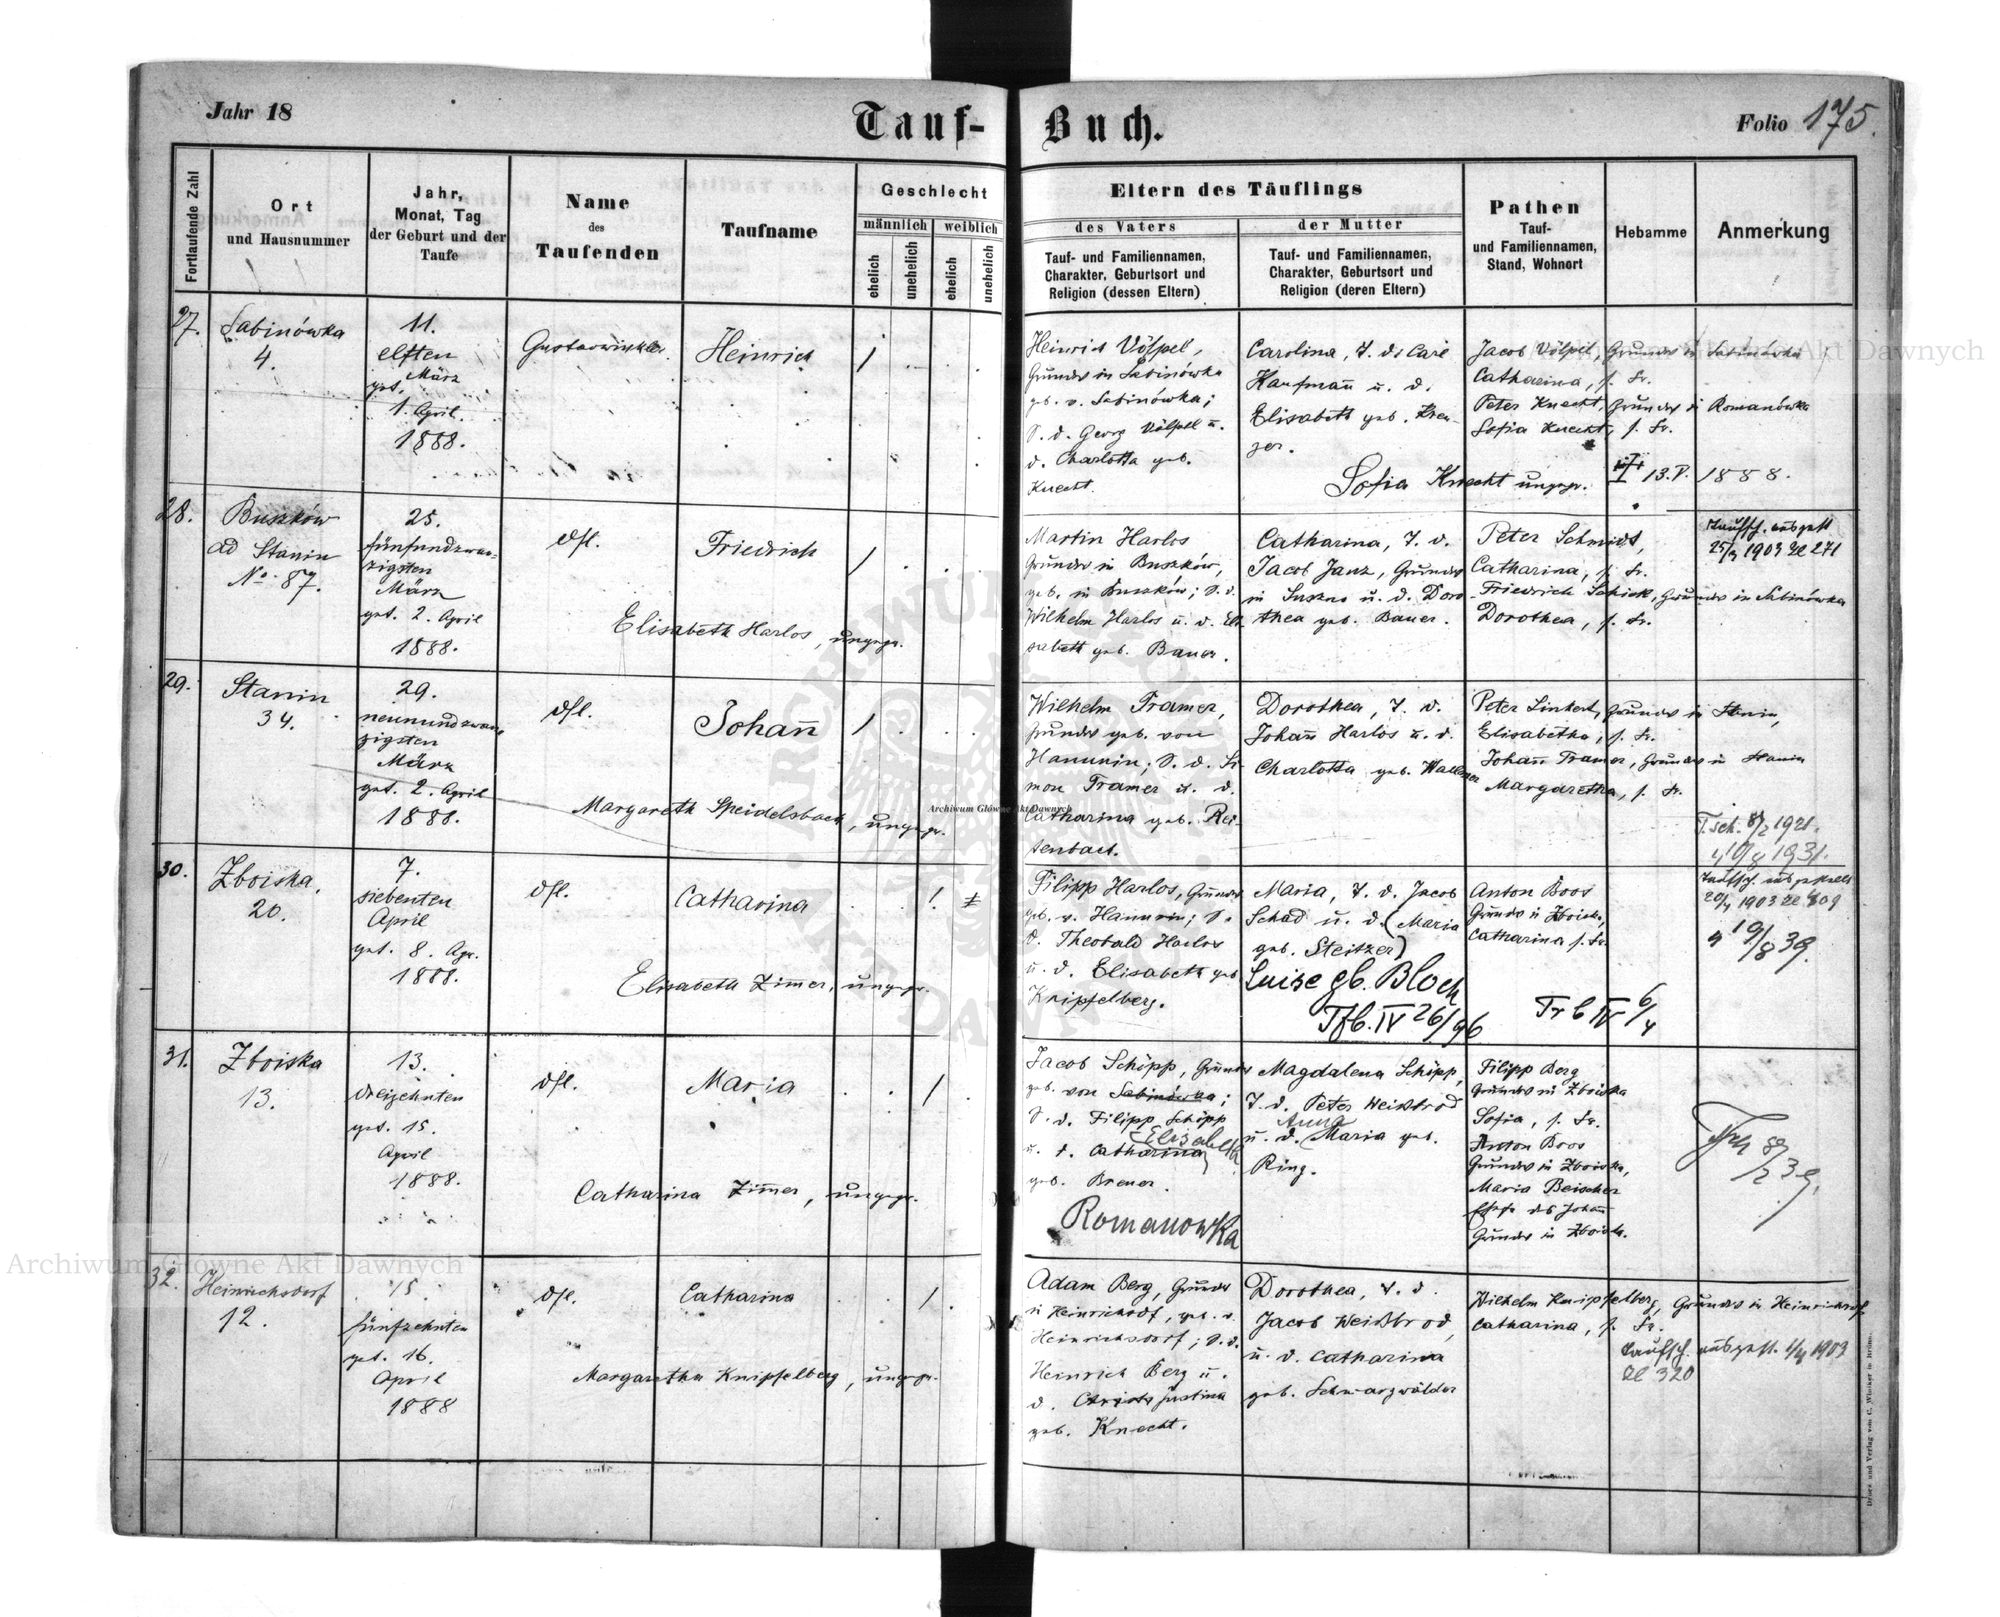 Jahr 18
Tauf-Buch.
Folio 175.
Fortlaufende Zahl
Ort
und Hausnummer
Jahr,
Monat, Tag
der Geburt und der
Taufe
Name
des
Taufenden
Taufname
Geschlecht
männlich
weiblich
ehelich
unehelich
ehelich
unehelich
Eltern des Täuflings
des Vaters
Tauf- und Familiennamen,
Charakter, Geburtsort und
Religion (dessen Eltern)
der Mutter
Tauf- und Familiennamen,
Charakter, Geburtsort und
Religion (deren Eltern)
Pathen
Tauf-
und Familiennamen,
Stand, Wohnort
Hebamme
Anmerkung
27.
Sabinówka
4.
11.
elften
März
get.
1. April.
1888.
Heinrich
Heinrich Völpel,
Grunder in Sabinówka
geb. v. Sabinówka;
S. d. Georg Völpel u.
d. Charlotta geb.
Knecht.
Carolina, T. d. Carl
Kaufman̄ u. d.
Elisabeth geb. Kreu-
zer.
Jacob Völpel, Grunder in Sabinówka
Catharina, s. Fr.
Peter Knecht, Grunder in Romanówka
Sofia Knecht, s. Fr.
Sofia Knecht ungepr.
13. V. 1888.
28.
Buszków
ad Stanin
No. 87.
25.
fünfundzwan-
zigsten
März
get. 2. April
1888.
dsl.
Friedrich
Elisabeth Harlos, ungepr.
Martin Harlos
Grunder in Buszków,
geb. in Buszków; S. d.
Wilhelm Harlos u. d. Eli-
sabeth geb. Bauer.
Catharina, T. d.
Jacob Janz, Grunder
in Suszno u. d. Doro-
thea geb. Bauer.
Peter Schmidt,
Catharina, s. Fr.
Friedrich Schick, Grunder in Sabinówka
Dorothea, s. Fr.
Taufsch. ausgest
25/3 1903 Zl 271
29.
Stanin
34.
29.
neunundzwan
zigsten
März
get. 2. April
1888.
dsl.
Johan̄
Margareth Speidelsbach, ungepr.
Wilhelm Tramer,
Grunder geb. von
Hanunin; S. d. Si-
mon Tramer u. d.
Catharina geb. Rei-
tenbach.
Dorothea, T. d.
Johan̄ Harlos u. d.
Charlotta geb.
Peter Linkert, Grunder in Stanin,
Elisabetha, s. Fr.
Johan̄ Tramer, Grunder in Stanin
Margaretha, s. Fr.
T. sch. 8/2 1921.
1931.
30.
Zboiska.
20.
7.
siebenten
April
get. 8. Apr.
1888.
dsl.
Catharina
Elisabeth Zim̄er, ungepr.
Filipp Harlos, Grunder
geb. v. Hanunin; S.
d. Theobald Harlos
u. d. Elisabeth geb
Knipfelberg.
Maria, T. d. Jacob
Schad u. d. (Maria
geb. Steitzer)
Luise gb. Bloch
Tfb. IV 26/96
Anton Boos
Grunder in Zboiska,
Catharina s. Fr.
Trb IV 6/4
Taufsch. ausgestellt
20/4 1903 Zl 309
19/8 39.
31.
Zboiska
13.
13.
dreizehnten
get. 15.
April
1888.
dsl.
Maria
Catharina Zim̄er, ungepr.
Jacob Schöpp, Grunder
geb. von Sabinówka;
S. d. Filipp Schöpp
Elisabeth
u. d. Catharina
geb. Breuer.
Romanowka
Magdalena Schöpp,
T. d. Peter Weißbrod
Anna
u. d. Maria geb.
Ring.
Filipp Berg
Grunder in Zboiska
Sofia, s. Fr.
Anton Boos
Grunder in Zboiska,
Maria Beischer
Ehefr. des Johan̄
Grunder in Zboiska.
32.
Heinrichsdorf
12.
15.
fünfzehnten
get. 16.
April
1888
dsl.
Catharina
Margaretha Knipfelberg, ungepr.
Adam Berg, Grunder
in Heinrichsdf, geb. v.
Heinrichsdorf; S. d.
Heinrich Berg u.
d. Justina
geb. Knecht.
Dorothea, T. d.
Jacob Weißbrod,
u. d. Catharina
geb. Schwarzwälder
Wilhelm Knipfelberg, Grunder in Heinrichsdf
Catharina, s. Fr.
Taufsch. ausgest. 4/4 1903
Zl 320
Druck und Verlag von C. Winiker in Brünn.
Archiwum Główne Akt Dawnych